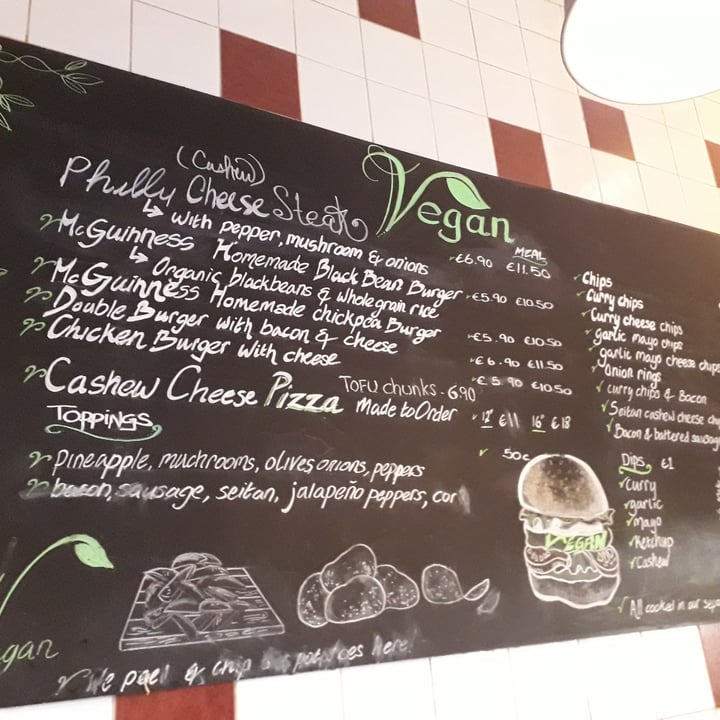 (Cashew)
Philly Cheese Steak
with pepper, mushroom & onions
Vegan
MEAL
€6.90 €11.50
McGuinness Homemade Black Bean Burger
€5.90 €10.50
Organic blackbeans & wholegrain rice
McGuinness Homemade chickpea Burger
€5.90 €10.50
Double Burger with bacon & cheese
€6.90 €11.50
Chicken Burger with cheese
€5.90 €10.50
Tofu chunks - 6.90
Cashew Cheese Pizza Made to Order
12" €11 16" €18
Toppings
50c
Pineapple, muchrooms, olives onions, peppers
bacon, sausage, seitan, jalapeño peppers, cor
Chips
Curry chips
Curry cheese chips
garlic mayo chips
garlic mayo cheese chips
Onion rings
curry chips & Bacon
Seitan cashew cheese
Bacon & battered sausage
Dips €1
Curry
garlic
mayo
Ketchup
Cashew
VEGAN
All cooked in our sep
gan
We peel & chip potatoes here!